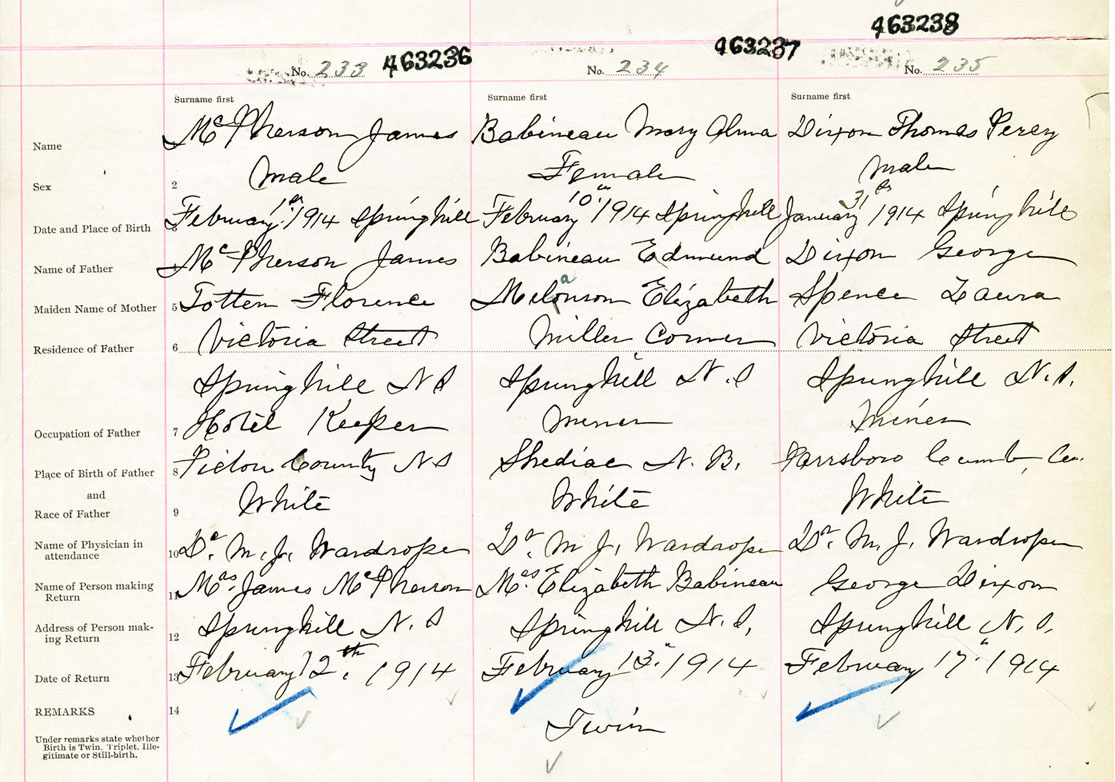 463236 463237 463238
No. 233 No. 234 No. 235
Surname first Surname first Surname first
Name McPherson James Babineau Mary Alma Dixon Thomas Percy
Sex 2 Male Female Male
Date and Place of Birth February 1st 1914 Springhill February 10th 1914 Springhill January 31st 1914 Springhill
Name of Father McPherson James Babineau Edmund Dixon George
Maiden Name of Mother 5 Totten Florence Melonson Elizabeth Spence Laura
Residence of Father 6 Victoria Street Miller Corner Victoria Street
Springhill N S Springhill N. S Springhill N. S.
Occupation of Father 7 Hotel Keeper Miner Miner
Place of Birth of Father 8 Pictou County N S Shediac N. B. Parrsboro Cumb. Co.
and
Race of Father 9 White White White
Name of Physician in attendance 10 Dr. M. J. Wardrope Dr. M. J. Wardrope Dr. M. J. Wardrope
Name of Person making Return 11 Mrs. James McPherson Mrs. Elizabeth Babineau George Dixon
Address of Person mak-ing Return 12 Springhill N. S Springhill N. S. Springhill N. S.
Date of Return 13 February 12th. 1914 February 13." 1914 February 17." 1914
REMARKS 14 Twin
Under remarks state whether
Birth is Twin, Triplet, Ille-
gitimate or Still-birth.